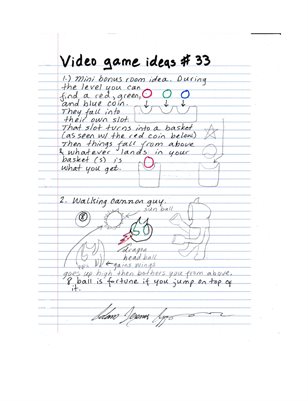 Video game ideas # 33
1.) Mini bonus room idea. During
the level you can
find a red, green,
and blue coin.
They fall into
their own slot.
That slot turns into a basket
(as seen w/ the red coin below)
Then things fall from above
& whatever lands in your
basket(s) is
what you get.
2. Walking cannon guy.
8
sun ball
50
dragon
head ball
gains wings
goes up high then bothers you from above.
8 ball is fortune if you jump on top of
it.